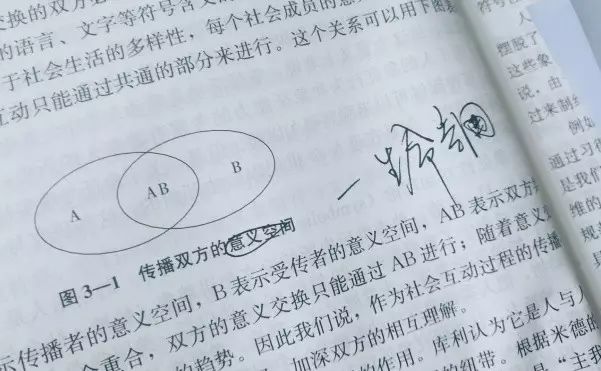 换的双方必
的语言、文字等符号含义
于社会生活的多样性，每个社会成员的意
互动只能通过共通的部分来进行。这个关系可以用下图
A
AB
B
图 3—1 传播双方的意义空间
示传播者的意义空间，B表示受传者的意义空间，AB表示双方
重合，双方的意义交换只能通过 AB 进行；随着意义
的趋势。因此我们说，作为社会互动过程的传播
加深双方的相互理解。
的作用。库利认为它是人与人
的纽带。根据米德的
是“主我
符号
人
摆脱了
这些象
说，由
过来制约
例如
通过习得
是我们
维的
规